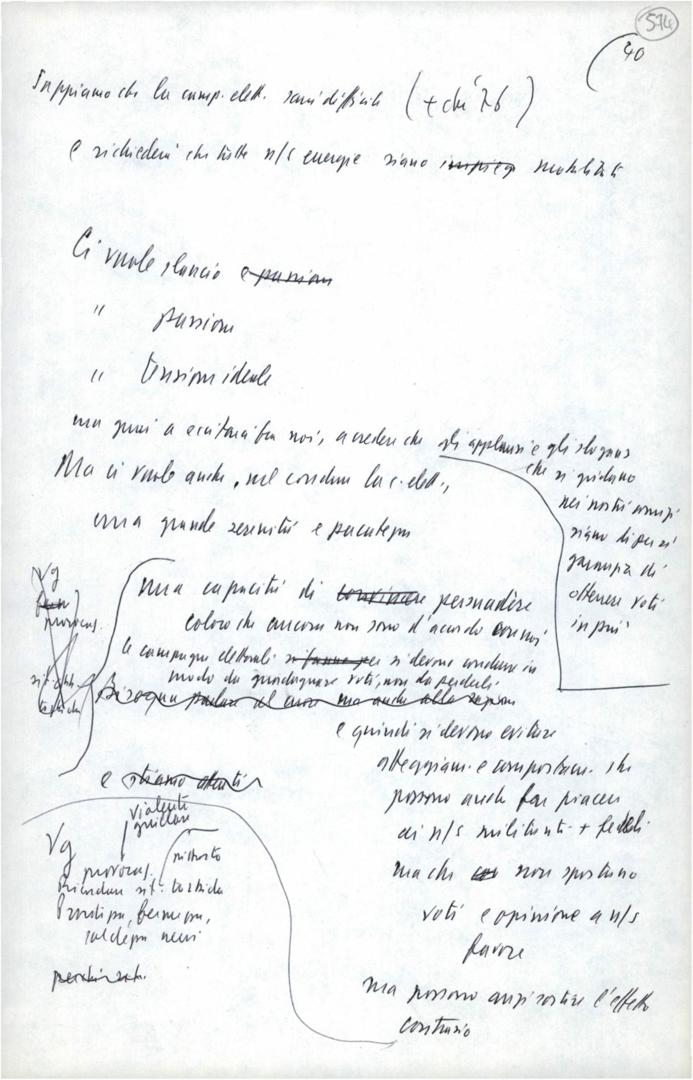 574
40
Sappiamo che la camp. elett. sarà difficile (+ che '76)
e richiederà che tutte n/s energie siano impieg mobilitate
Ci vuole slancio e passione
" passione
" tensione ideale
ma guai a eccitarci fra noi, a credere che gli applausi e gli slogans
che si gridano
nei nostri comizi
siano di per sé
garanzia di
ottenere voti
in più
Ma ci vuole anche, nel condurre la c. elett.,
una grande serenità e pacatezza
una capacità di convincere persuadere
coloro che ancora non sono d'accordo con noi
le campagne elettorali si fanno per si devono condurre in
modo da guadagnare voti, non da perderli
Bisogna parlare al cuore ma anche alla ragione
Vg
provocaz.
e quindi si devono evitare
atteggiam. e comportam. che
possono anche far piacere
ai n/s militanti + fedeli
ma che non spostano
voti e opinione a n/s
favore
ma possono anzi sortire l'effetto
contrario
e stiamo attenti
Vg
violenti
provocaz.
Prontezza, fermezza,
saldezza nervi